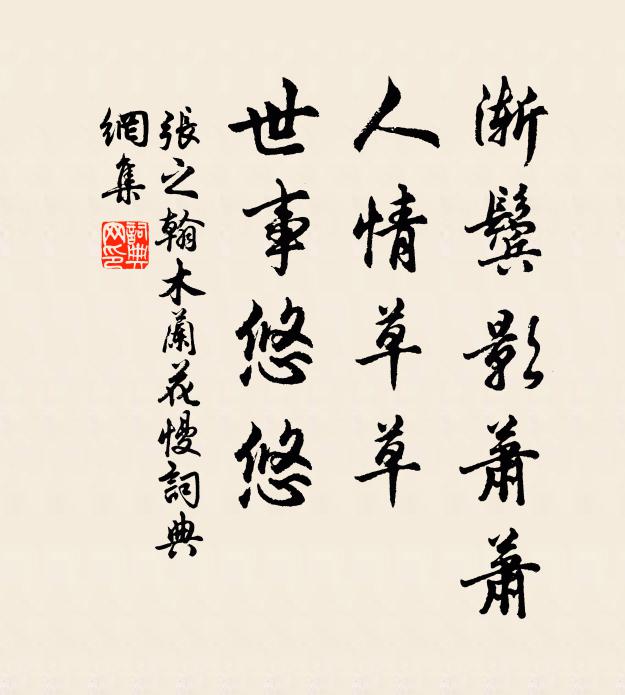 漸鬢影蕭蕭
人情草草
世事悠悠
張之翰木蘭花慢詞典
網集
詞典
网印